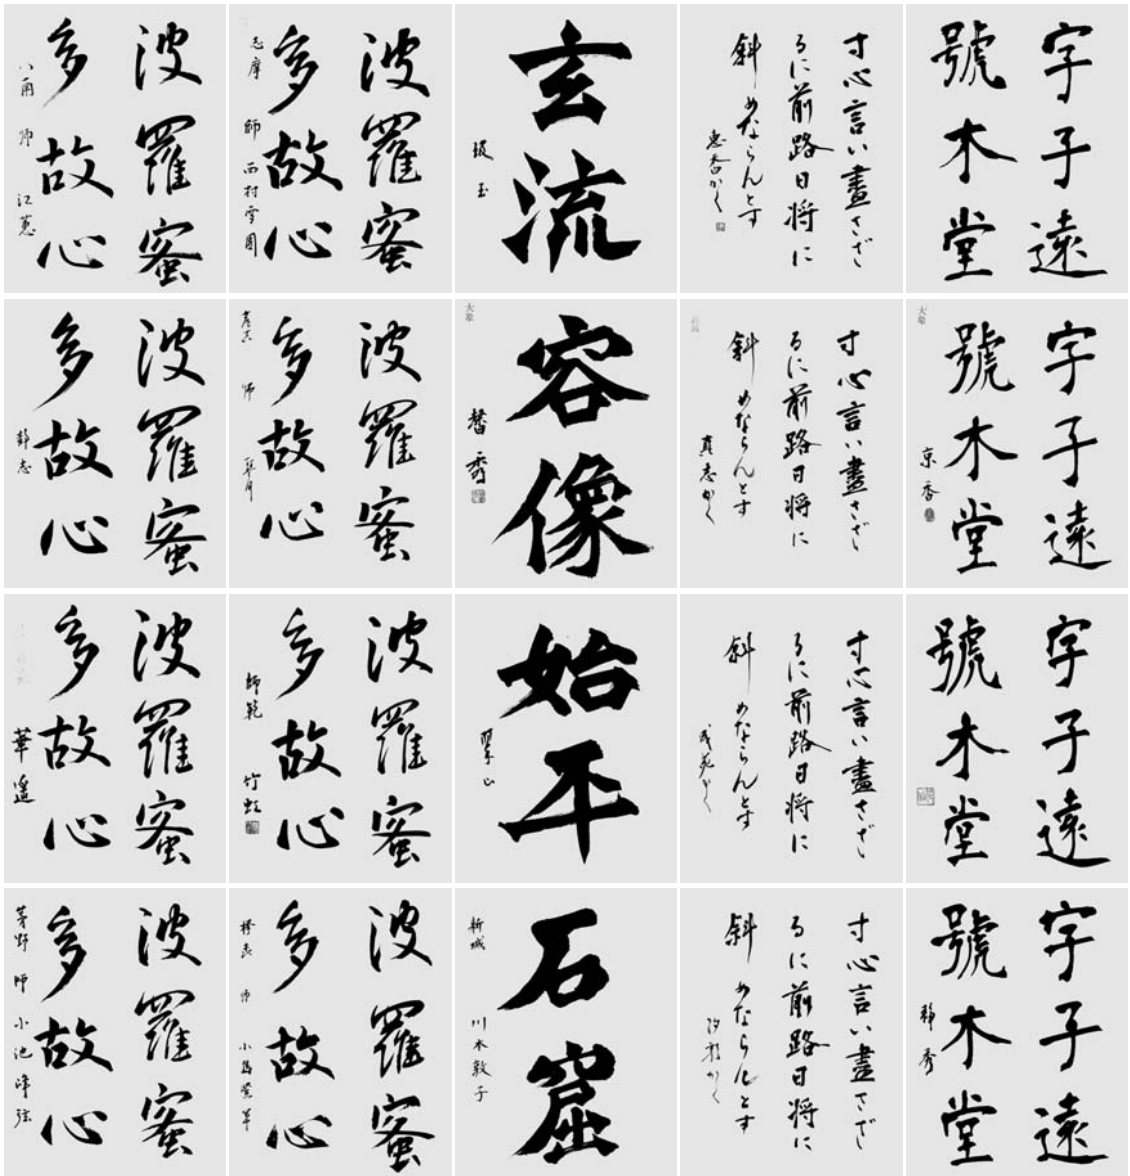 波羅蜜
多故心
八角 師 江蕙
波羅蜜
多故心
志摩 師 西村雪園
玄流
寸心言い盡さざ
るに前路日将に
斜めならんとす
恵香かく
字子遠
號木堂
波羅蜜
多故心
静志
波羅蜜
多故心
師
容像
馨秀
寸心言い盡さざ
るに前路日将に
斜めならんとす
真志かく
字子遠
號木堂
京香
波羅蜜
多故心
華遥
波羅蜜
多故心
師範 竹虹
始平
翠心
寸心言い盡さざ
るに前路日将に
斜めならんとす
成苑かく
字子遠
號木堂
波羅蜜
多故心
茅野 師 小池
波羅蜜
多故心
師 小島
石窟
新城 川本敦子
寸心言い盡さざ
るに前路日将に
斜めならんとす
かく
字子遠
號木堂
静秀